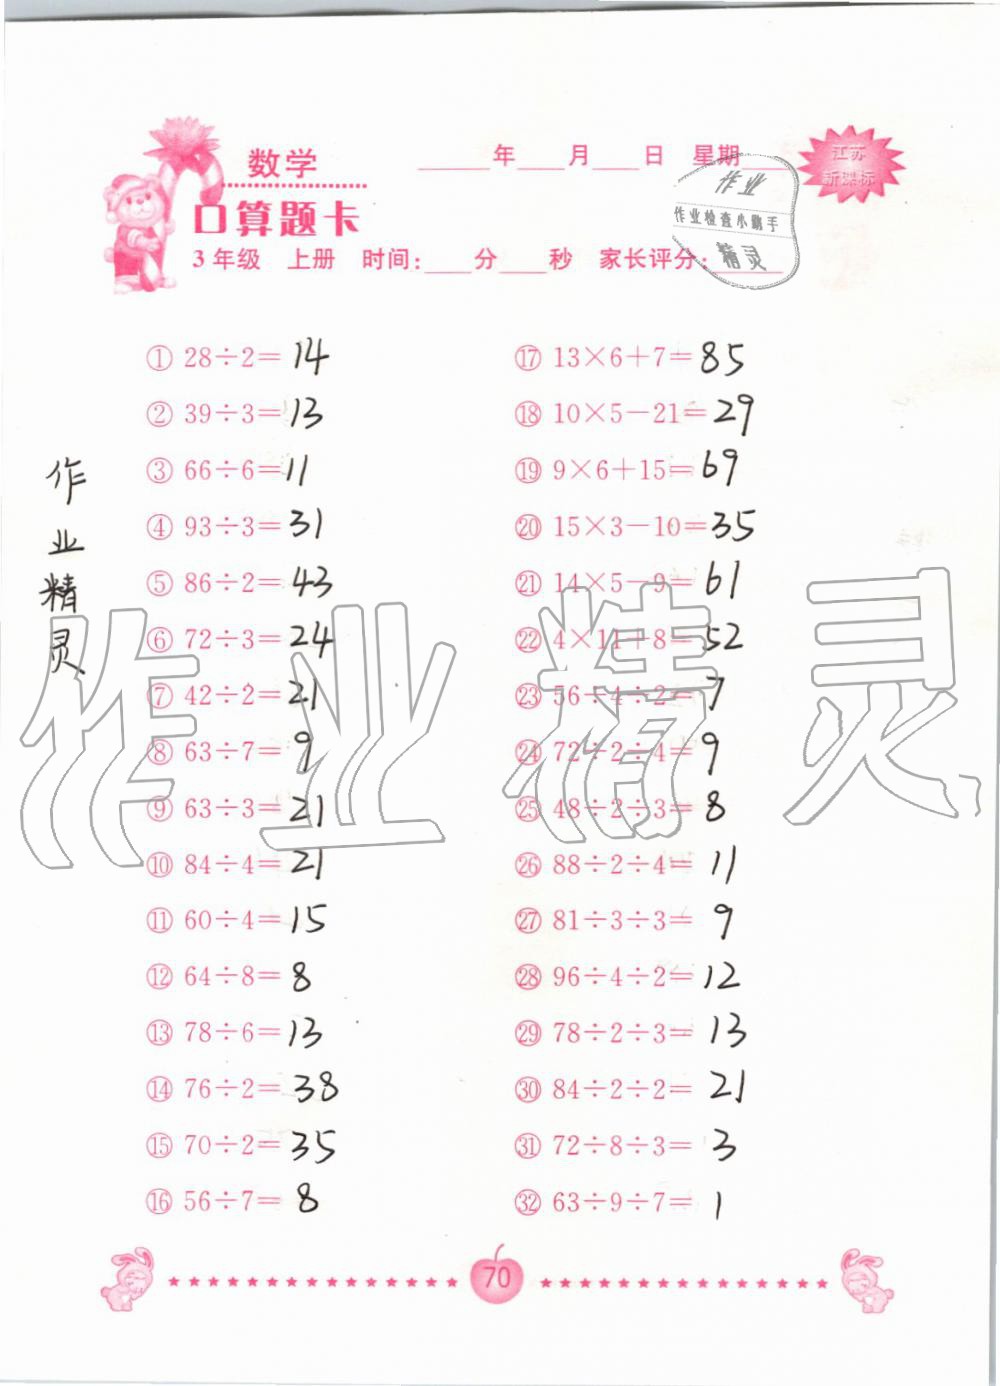 数学
____年____月____日 星期____
江苏
新课标
口算题卡
3年级 上册 时间:____分____秒 家长评分:____
作业
作业检查小助手
精灵
① 28÷2=14
② 39÷3=13
③ 66÷6=11
④ 93÷3=31
⑤ 86÷2=43
⑥ 72÷3=24
⑦ 42÷2=21
⑧ 63÷7=9
⑨ 63÷3=21
⑩ 84÷4=21
⑪ 60÷4=15
⑫ 64÷8=8
⑬ 78÷6=13
⑭ 76÷2=38
⑮ 70÷2=35
⑯ 56÷7=8
⑰ 13×6+7=85
⑱ 10×5-21=29
⑲ 9×6+15=69
⑳ 15×3-10=35
㉑ 14×5-9=61
㉒ 4×11+8=52
㉓ 56÷4÷2=7
㉔ 72÷2÷4=9
㉕ 48÷2÷3=8
㉖ 88÷2÷4=11
㉗ 81÷3÷3=9
㉘ 96÷4÷2=12
㉙ 78÷2÷3=13
㉚ 84÷2÷2=21
㉛ 72÷8÷3=3
㉜ 63÷9÷7=1
作业精灵
作业精灵
70